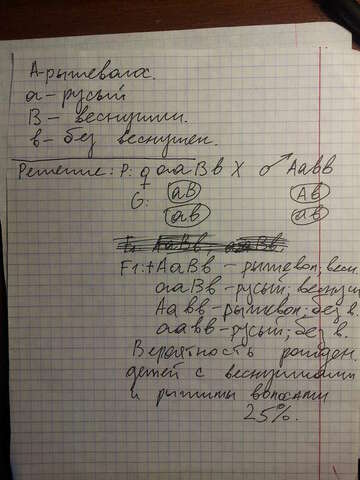 А-рыжеволос.
а-русый
В - веснушки.
в-без веснушек.
Решение: Р: ♀ ааВв Х ♂ Аавв
G: аВ Ав
ав ав
F1: АаВв ааВв
F1: АаВв - рыжевол; весн.
ааВв-русый; веснуш
Аавв-рыжевол; без в.
аавв-русый; без в.
Вероятность рожден.
детей с веснушками
и рыжими волосами
25%.